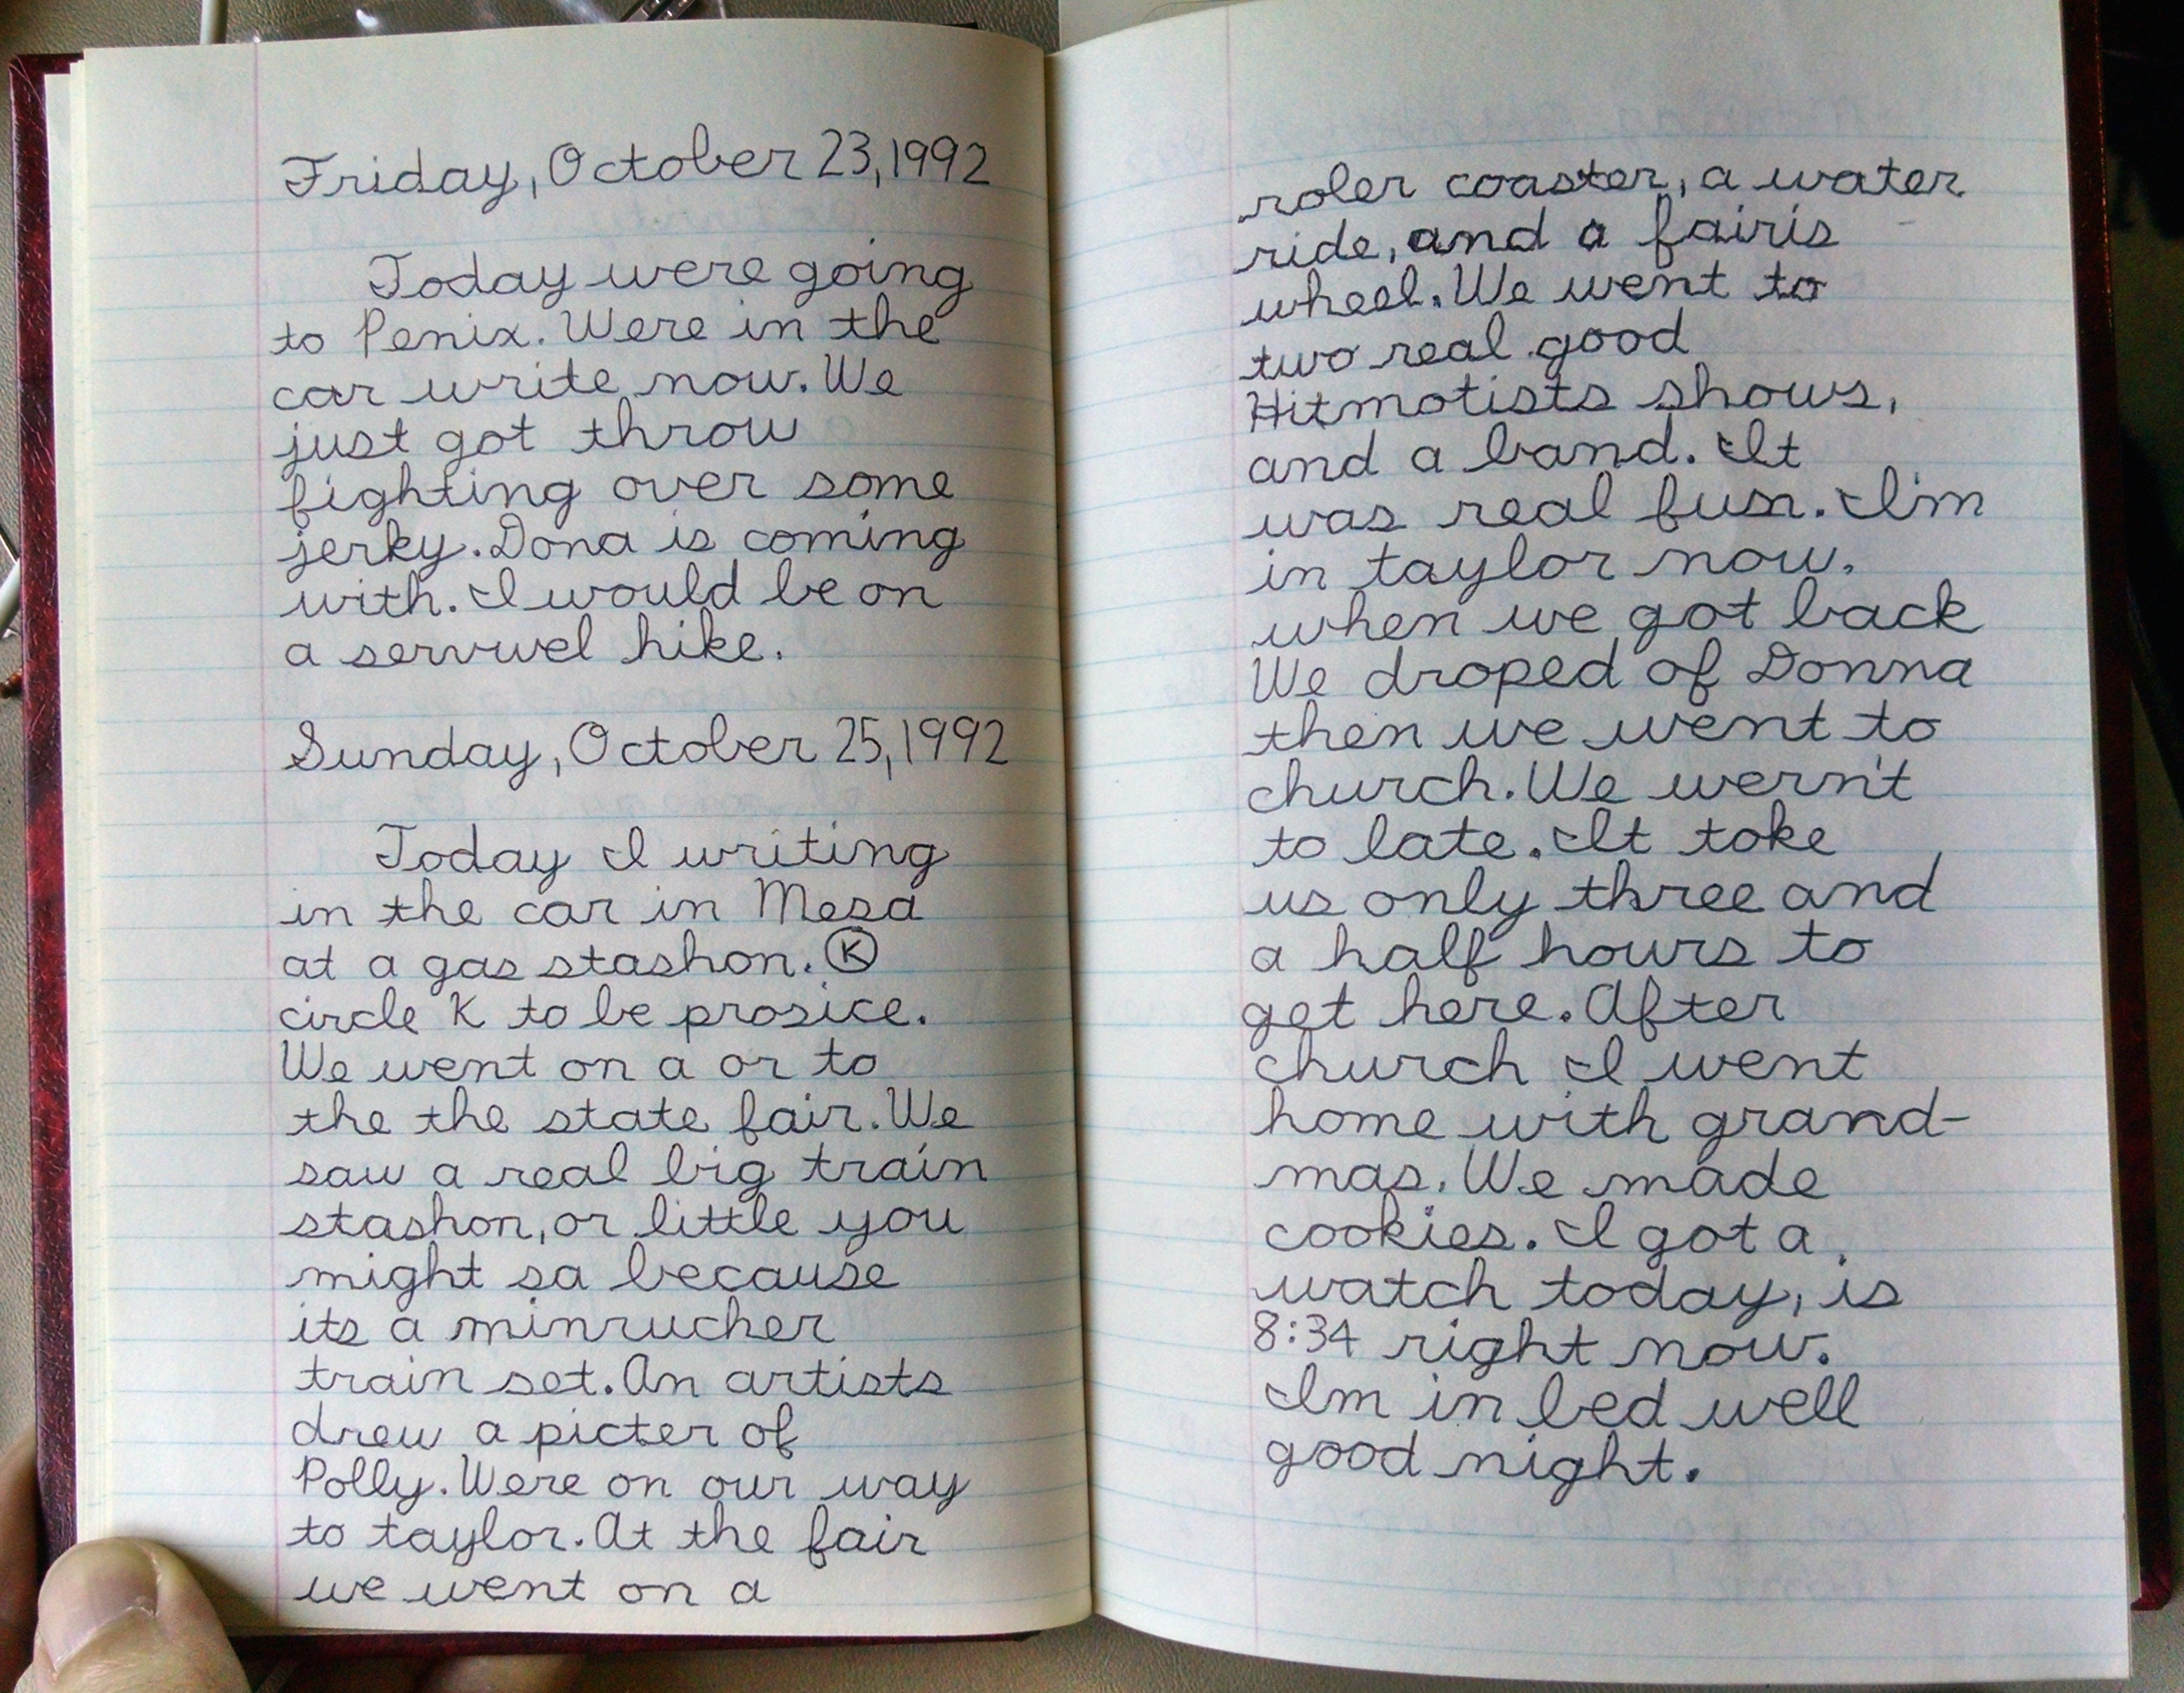 Friday, October 23, 1992
Today were going
to Penix. Were in the
car write now. We
just got throw
fighting over some
jerky. Dona is coming
with. I would be on
a servivel hike.
Sunday, October 25, 1992
Today I writing
in the car in Mesa
at a gas stashon. Ⓚ
circle K to be prosice.
We went on a or to
the the state fair. We
saw a real big train
stashon, or little you
might sa because
its a minrucher
train set. An artists
drew a picter of
Polly. Were on our way
to taylor. At the fair
we went on a
roler coaster, a water
ride, and a fairis
wheel. We went to
two real good
Hitmotists shows,
and a band. It
was real fun. I'm
in taylor now.
when we got back
We droped of Donna
then we went to
church. We wern't
to late. It toke
us only three and
a half hours to
get here. After
church I went
home with grand-
mas. We made
cookies. I got a
watch today, is
8:34 right now.
Im in bed well
good night.